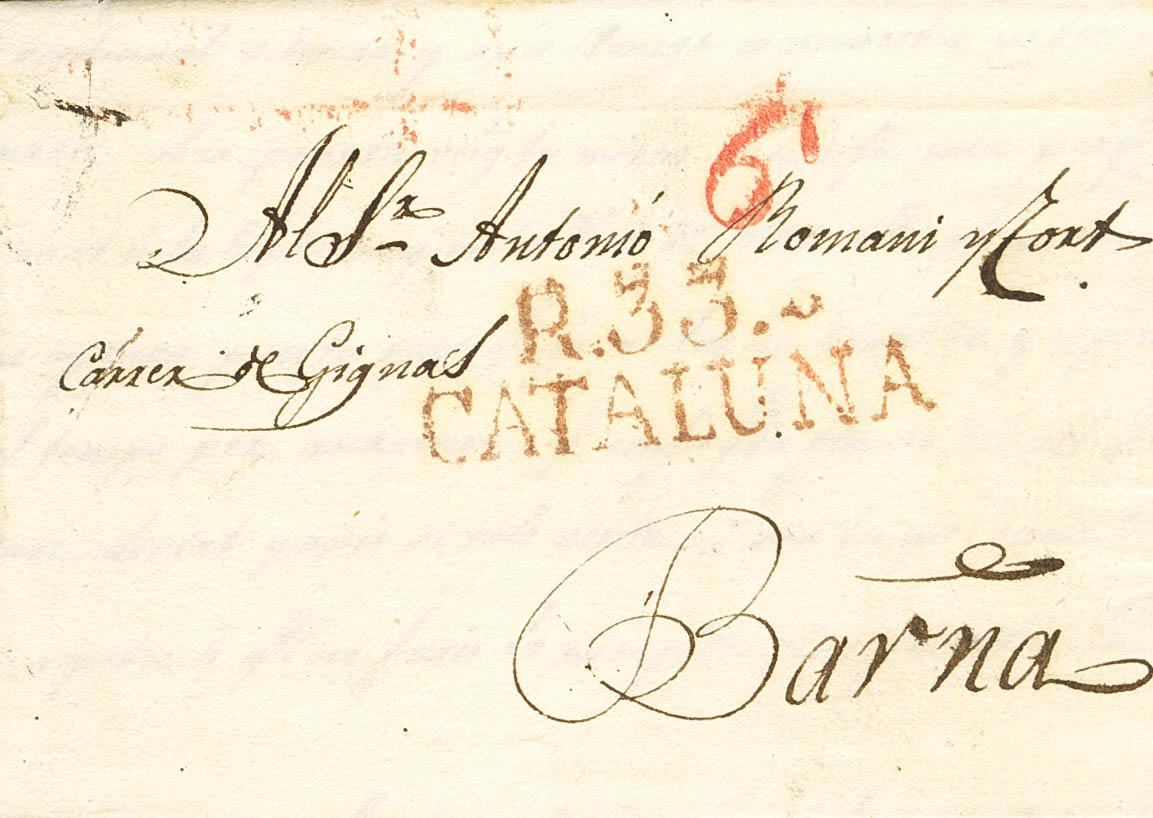 6
Al Sr. Antonió Romani y Tort.
R.33.
Cárrer de Gignas
CATALUÑA
Barna